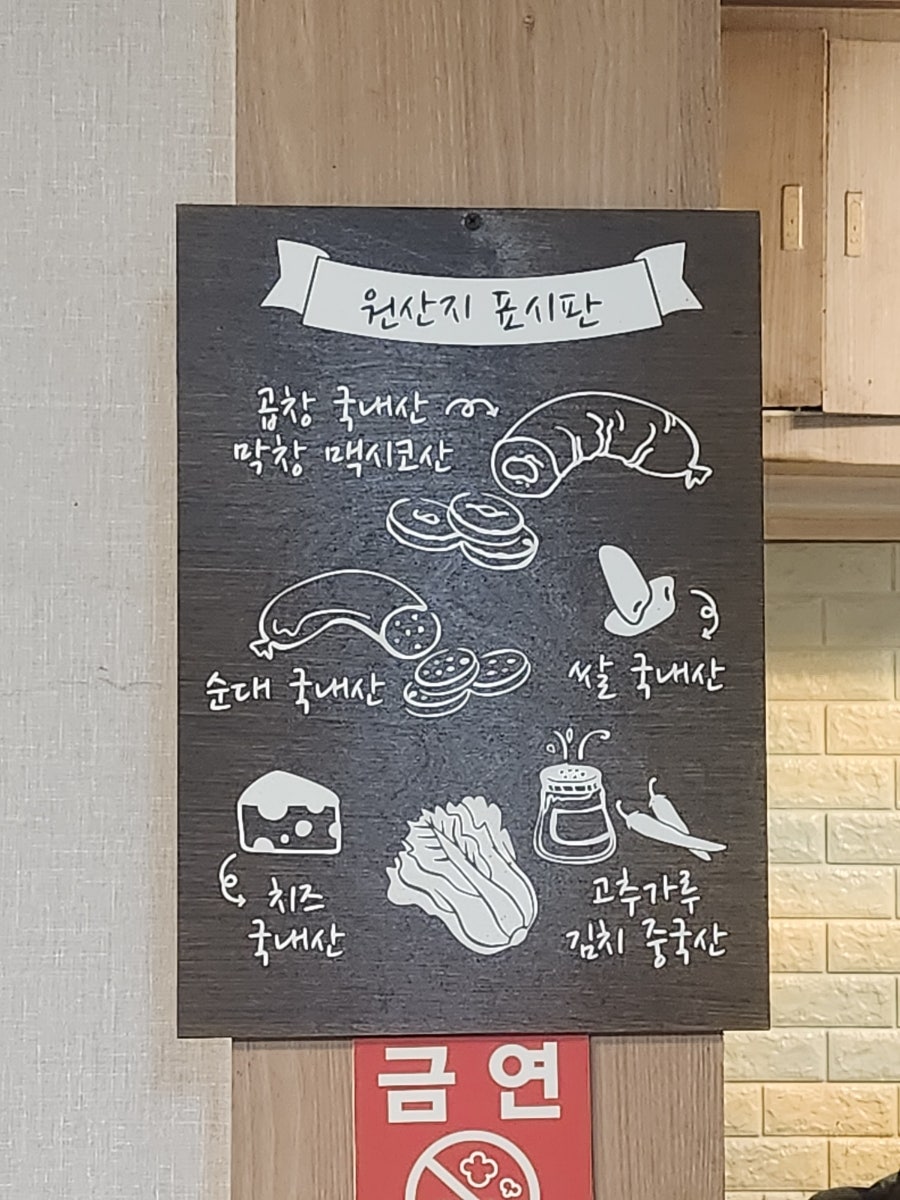 원산지 표시판
곱창 국내산
막창 맥시코산
순대 국내산
쌀 국내산
치즈
국내산
고추가루
김치 중국산
금연